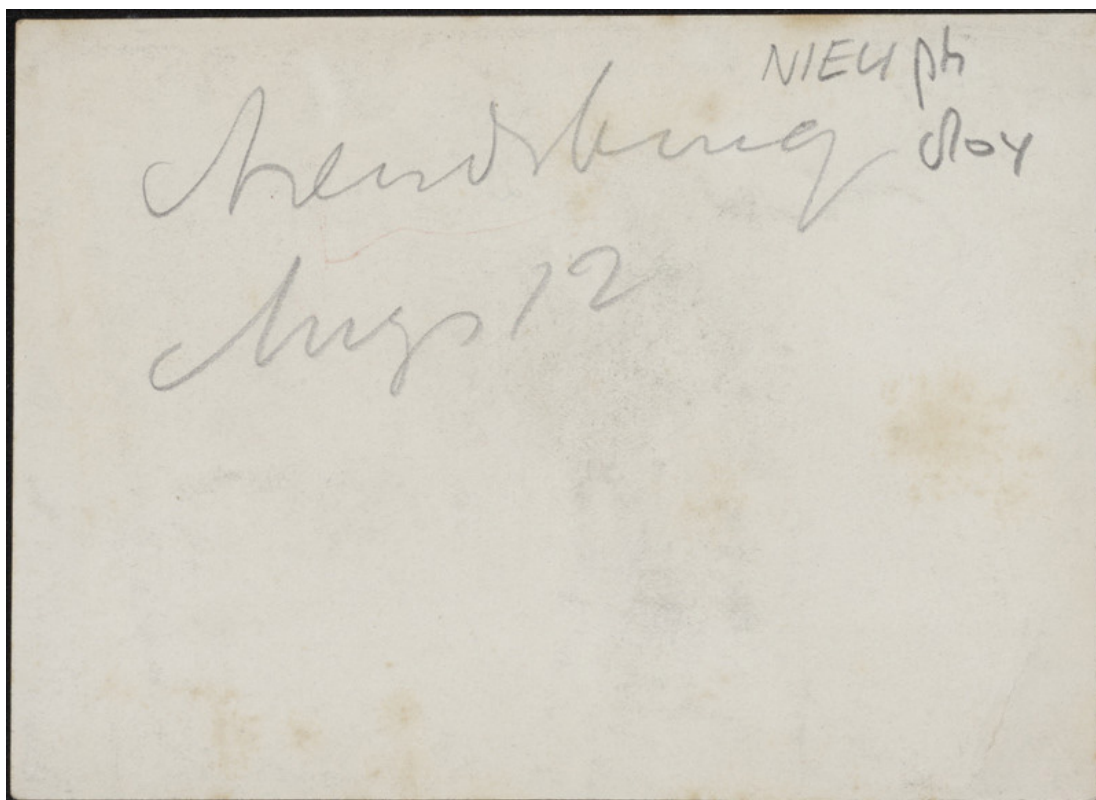 NIEU ph
Arendsburg
Augs 12